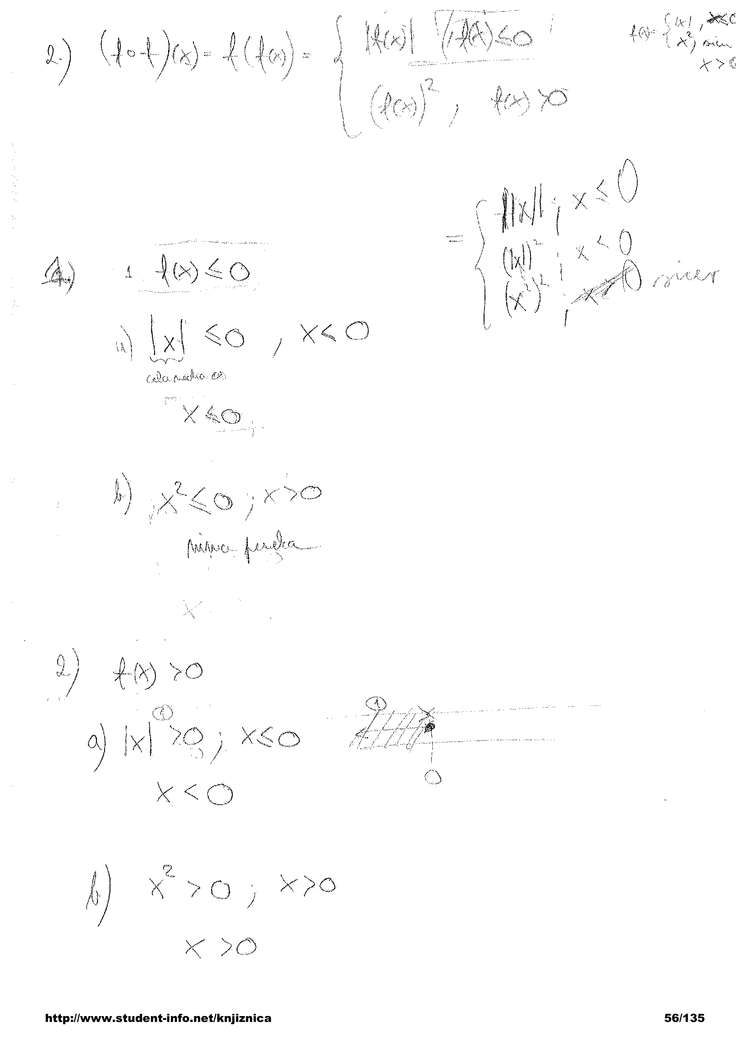 2.) (f∘f)(x) = f(f(x)) = { |f(x)| , f(x) ≤ 0 ;
(f(x))², f(x) > 0
f(x) = { |x|, x ≤ 0
x², sicer
x > 0
= { ||x|| ; x ≤ 0
(|x|)² ; x < 0
(x²)² ; x > 0 sicer
1.) 1. f(x) ≤ 0
a) |x| ≤ 0 , x ≤ 0
x ≤ 0
b) x² ≤ 0 ; x > 0
nima
2) f(x) > 0
a) |x| > 0 ; x ≤ 0
①
x < 0
① x
0
b) x² > 0 ; x > 0
x > 0
http://www.student-info.net/knjiznica 56/135